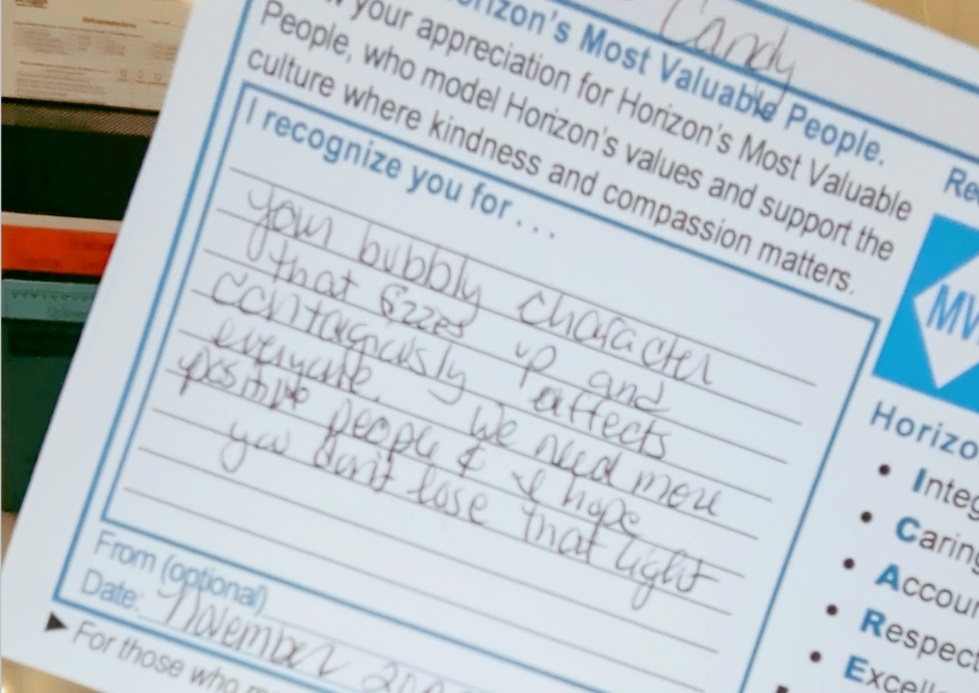 Candy
Horizon's Most Valuable People.
your appreciation for Horizon's Most Valuable
People, who model Horizon's values and support the
culture where kindness and compassion matters.
I recognize you for . . .
your bubbly character
that fizzes up and
contagiously affects
everyone. We need more
positive people & I hope
you don't lose that light
From (optional)
Date: November
▶ For those who
Re
MV
Horizo
• Integ
• Caring
• Accou
• Respect
• Excell